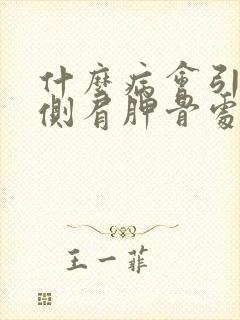 什麼病會引
側肩胛骨處
王一菲